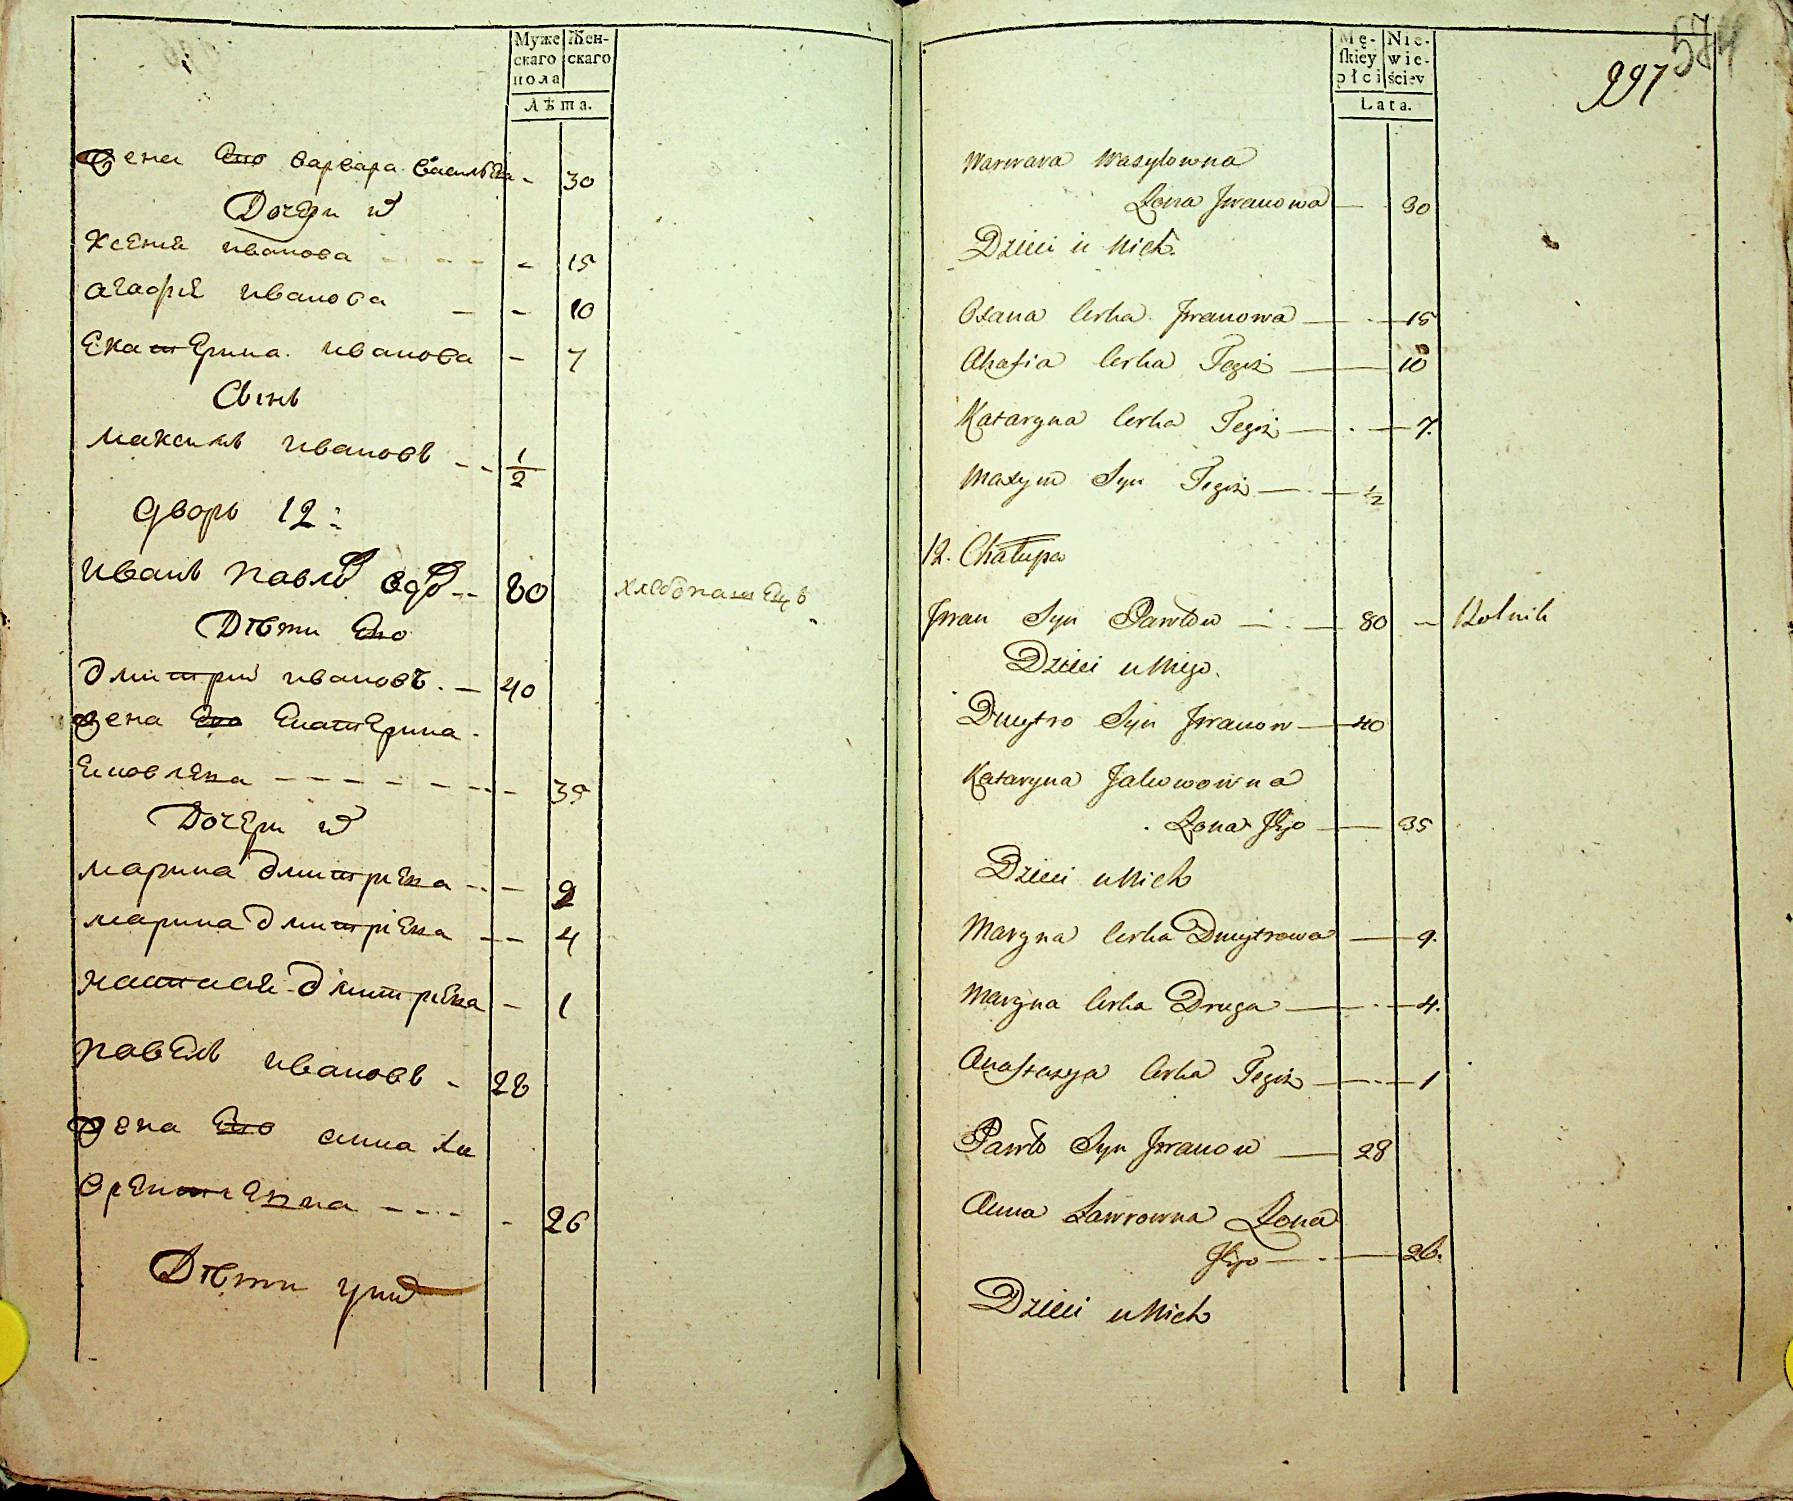 Муже
скаго
пола
Жен-
скаго
Лѣта.
жена Его варвара василЕва - 30
Дочери их
Ксения иванова - - - - 15
агафия иванова - - 10
Екатерина иванова - 7
Сынъ
максимъ ивановъ - - 1/2
дворъ 12:
иванъ павловъ вдов - - 80 хлебопашецъ
Дѣти Его
дмитрий ивановъ. - 40
жена Его Екатерина
Яковлева - - - - - - - 35
Дочери их
марина дмитриева - - - 9
марина дмитриева - - 4
настасия дмитриева - 1
павелъ ивановъ - 28
жена Его анна ла
врентиевна - - - - - 26
Дѣти у них
Mę-
skiey
płci
Nie-
wie-
ściey
Lata.
574
997
Warwara Wasylowna
Żona Jwanowa — 30
Dzieci u Nich.
Oxana Corka Jwanowa — 15
Ahafia Corka Tegoż — 10
Kataryna Corka Tegoż — 7.
Maxym Syn Tegoż — 1/2
12. Chałupa
Jwan Syn Pawłow — 80 — Rolnik
Dzieci u Niego.
Dmytro Syn Jwanow — 40
Kataryna Jakowowna
Żona Jego — 35
Dzieci u Nich
Maryna Corka Dmytrowa — 9.
Maryna Corka Druga — 4.
Anastazya Corka Tegoż — 1
Pawło Syn Jwanow — 28
Anna Ławrowna Żona
Jego — 26.
Dzieci u Nich